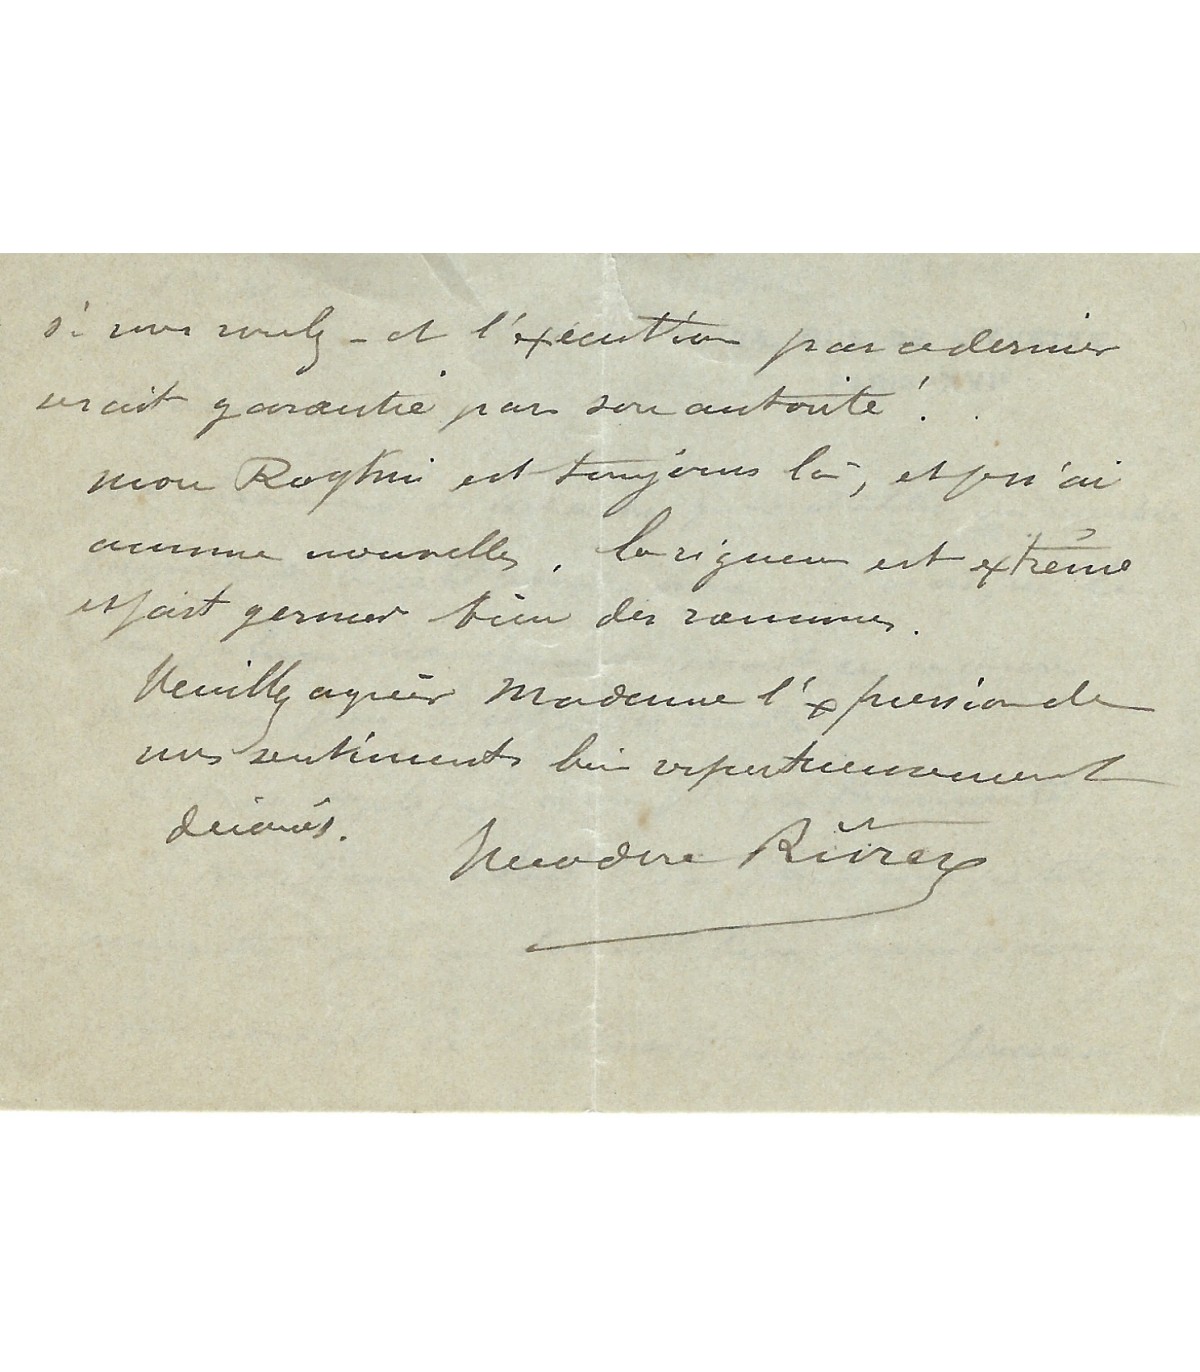 si vous voulez - et l'exécution par ce dernier
serait garantie par son autorité !
mon est toujours là, et je n'ai
aucune nouvelles, la rigueur est extrême
et fait germer bien des rancunes.
Veuillez agréer Madame l'expression de
mes sentiments bien respectueusement
dévoués.
Théodore Rivière